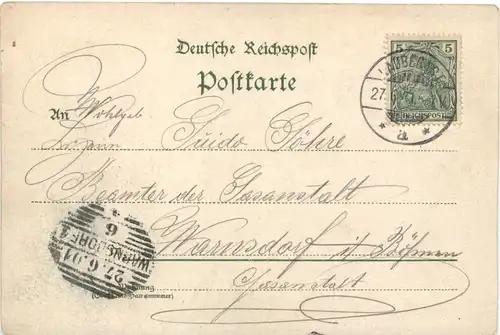 Deutsche Reichspost
Postkarte
5 5
27.
REICHSPOST
* a *
An Wohlgeb
Herrn Guido Göhre
Beamter der Gasanstalt
Warnsdorf i/ Böhmen
Gasanstalt
WARNSDORF 1
27.6.01
6
Wohnung